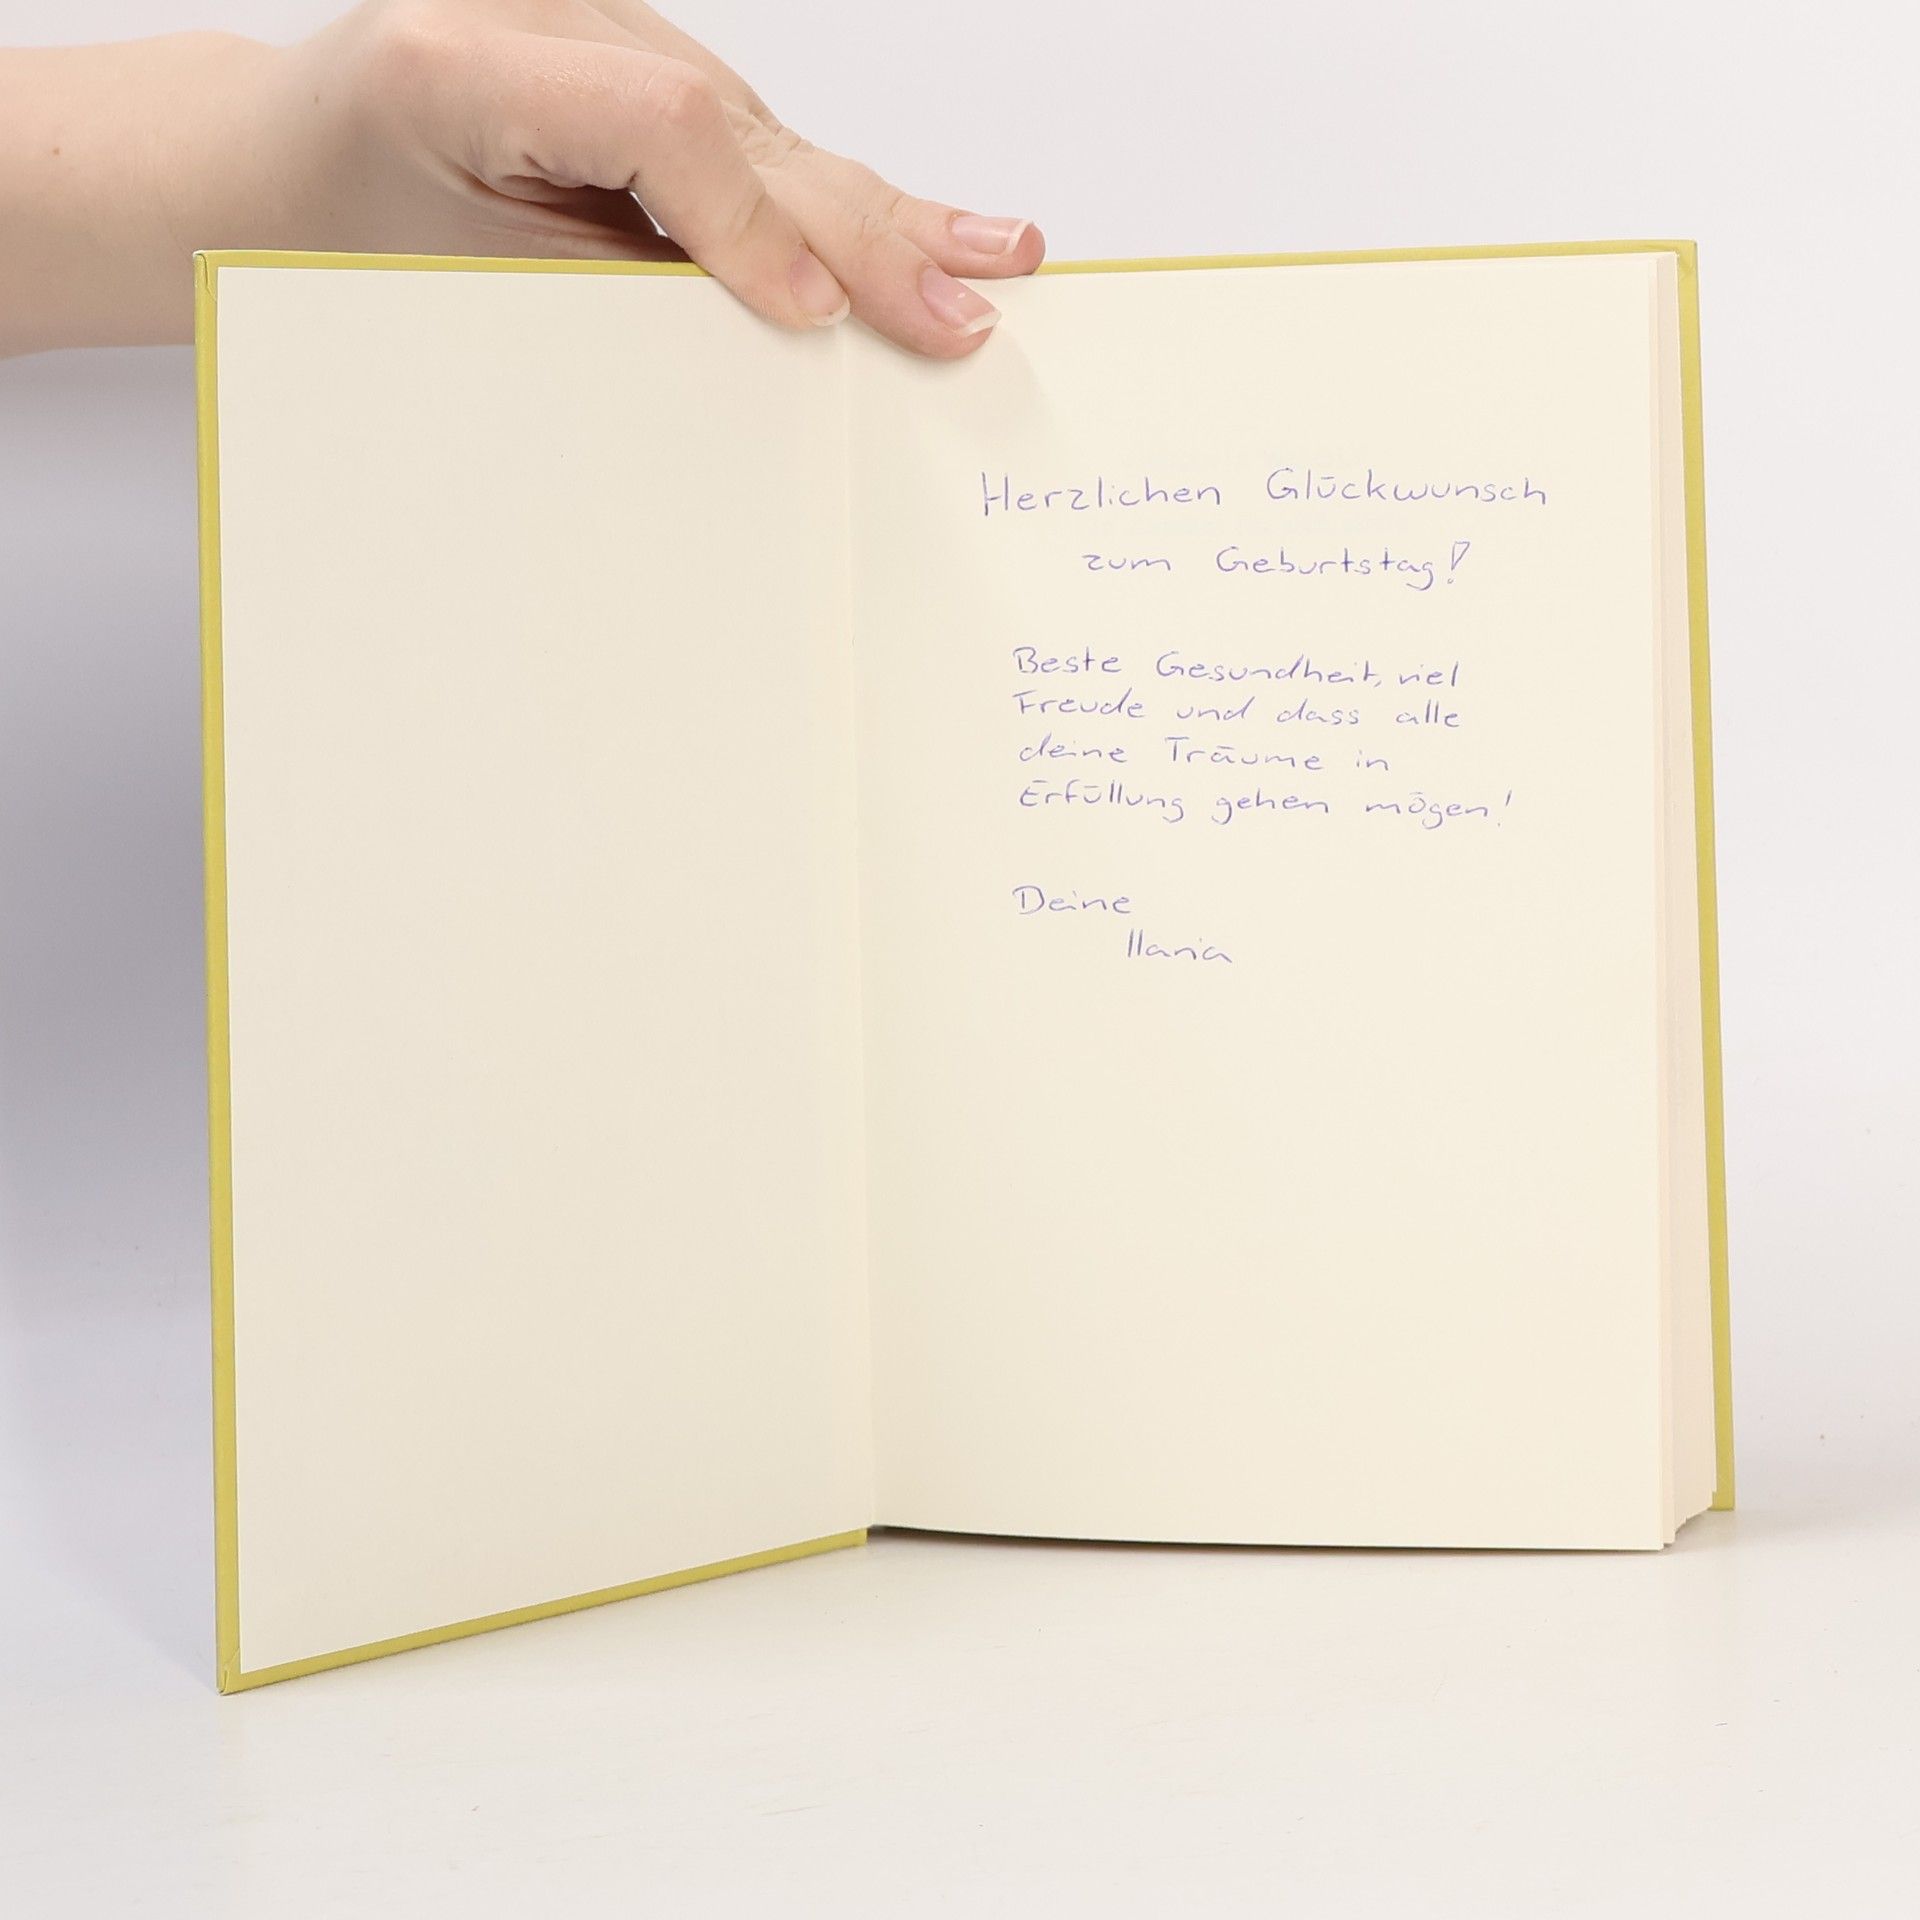 Herzlichen Glückwunsch
zum Geburtstag!
Beste Gesundheit, viel
Freude und dass alle
deine Träume in
Erfüllung gehen mögen!
Deine
Ilaria